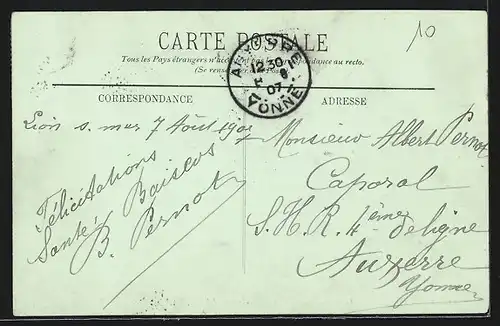 10
CARTE POSTALE
Tous les Pays étrangers n'acceptent pas la correspondance au recto.
(Se renseigner à la Poste)
AUXERRE
12.30
8
07
YONNE
CORRESPONDANCE
ADRESSE
Lion s. mer 7 Août 1907
Félicitations
Santé, Baisers
B. Pernot
Monsieur Albert Pernot
Caporal
S.H.R. 4ème de ligne
Auxerre
Yonne